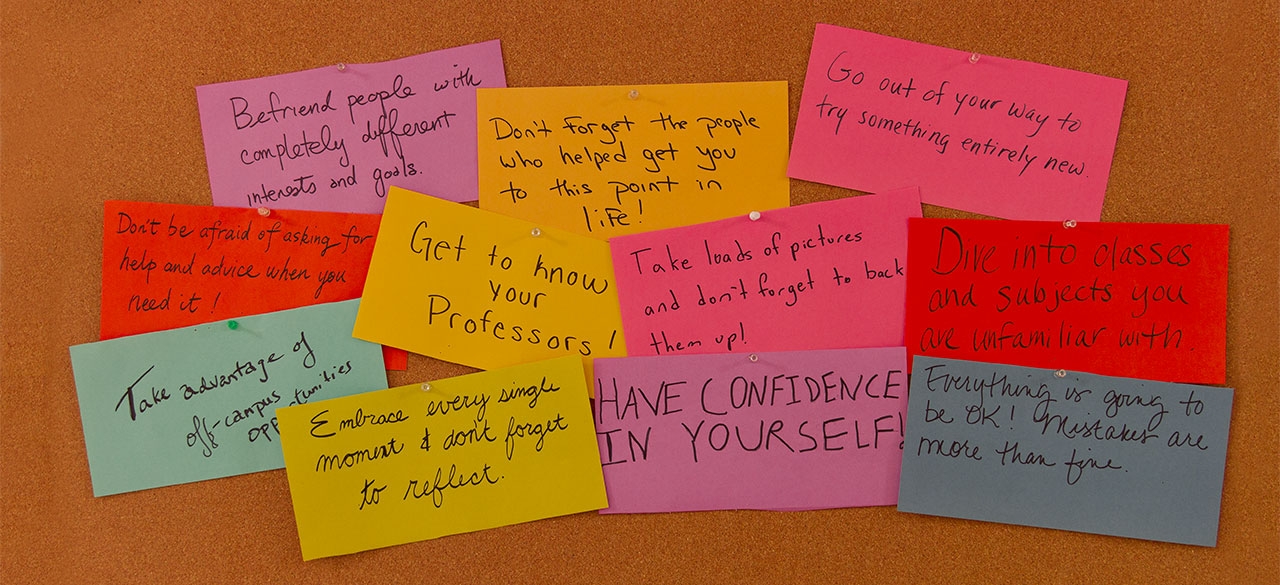 Befriend people with
completely different
interests and goals.
Don't forget the people
who helped get you
to this point in
life!
Go out of your way to
try something entirely new.
Don't be afraid of asking for
help and advice when you
need it!
Get to know
your
Professors!
Take loads of pictures
and don't forget to back
them up!
Dive into classes
and subjects you
are unfamiliar with.
Take advantage of
off-campus
Embrace every single
moment & don't forget
to reflect.
HAVE CONFIDENCE
IN YOURSELF!
Everything is going to
be OK! Mistakes are
more than fine.